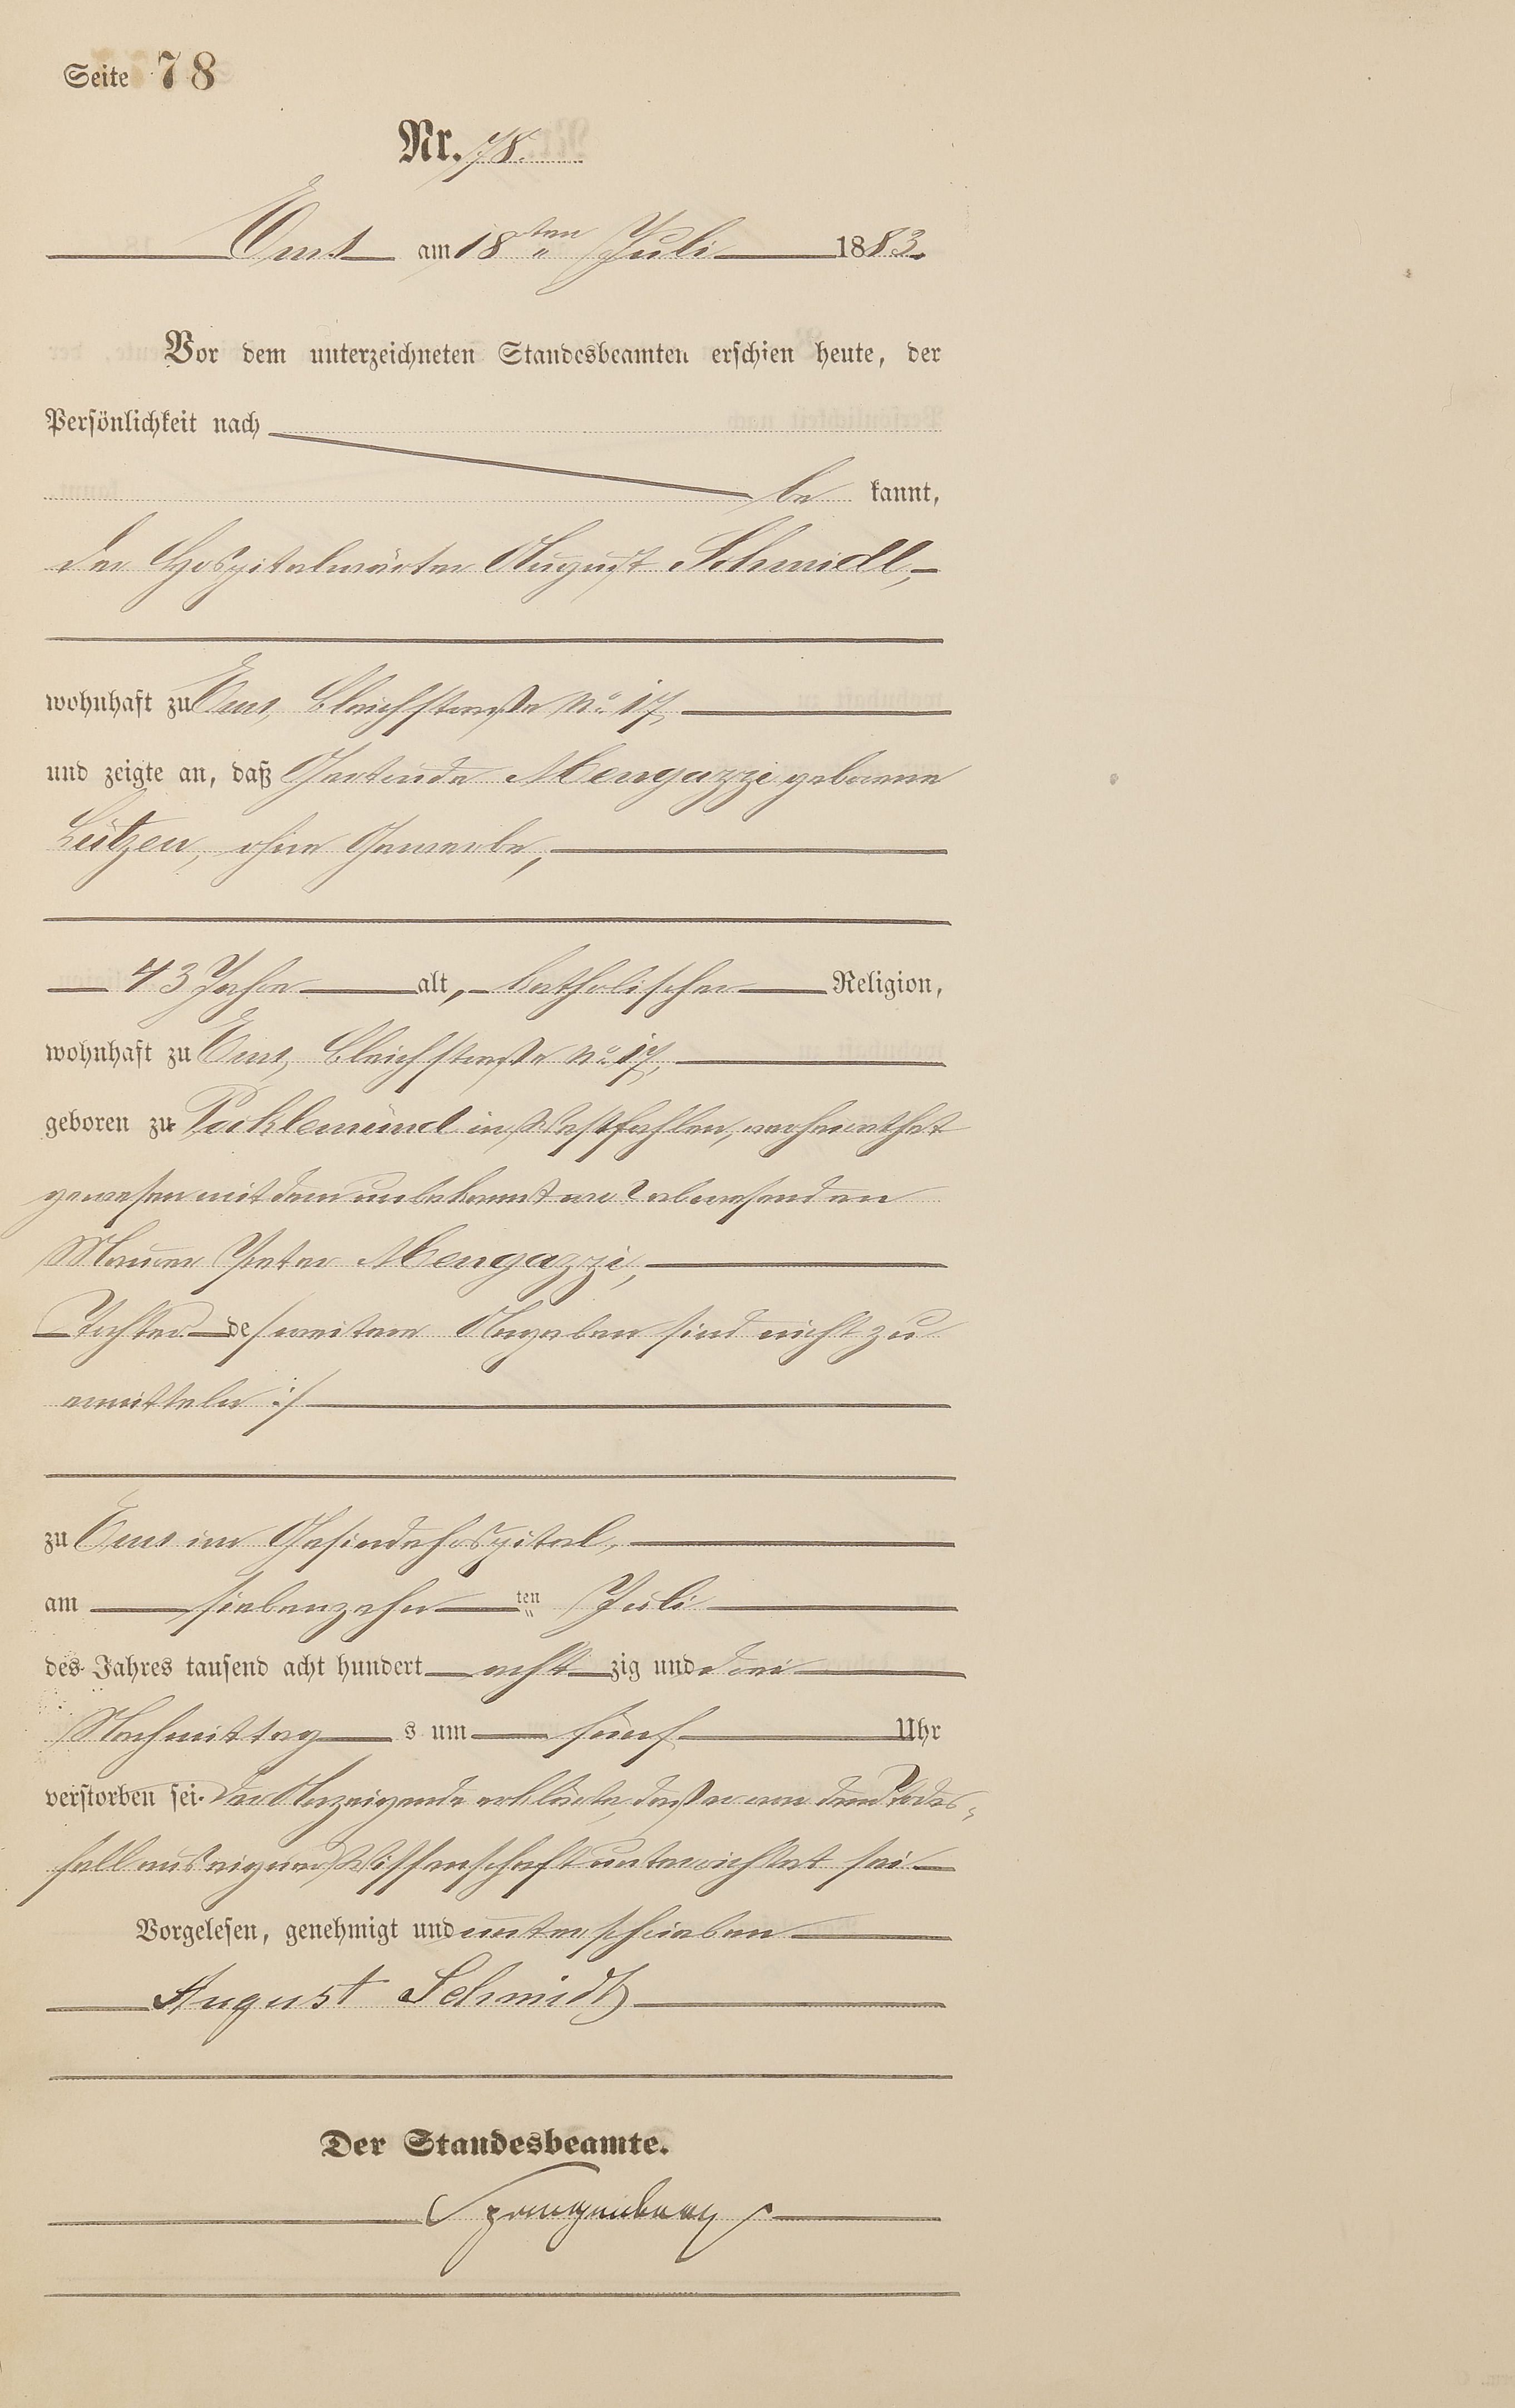 Seite 78
Nr. 78.
Ems am 18ten Juli 1883.
Vor dem unterzeichneten Standesbeamten erschien heute, der
Persönlichkeit nach
be kannt,
der Hospitalwärter August Schmidt,
wohnhaft zu Ems, Bleichstraße No 17,
und zeigte an, daß Gertrude Mengazzi geborene
Lützen, ohne Gewerbe,
43 Jahre alt, katholischer Religion,
wohnhaft zu Ems, Bleichstraße No 17,
geboren zu Pocklemünd in Westfahlen, verheirathet
gewesen mit dem unbekannt wo? abwesenden
Maurer Peter Mengazzi,
Tochter de/ weitere Angaben sind nicht zu
ermitteln :/
zu Ems im Gesindehospital,
am siebenzehn ten Juli
des Jahres tausend acht hundert acht zig und drei
Nachmittag s um fünf Uhr
verstorben sei. Der Anzeigende erklärte, daß er von dem Todes-
fall aus eigener Wissenschaft unterrichtet sei
Vorgelesen, genehmigt und unterschrieben
August Schmidt
Der Standesbeamte.
Spangenberg